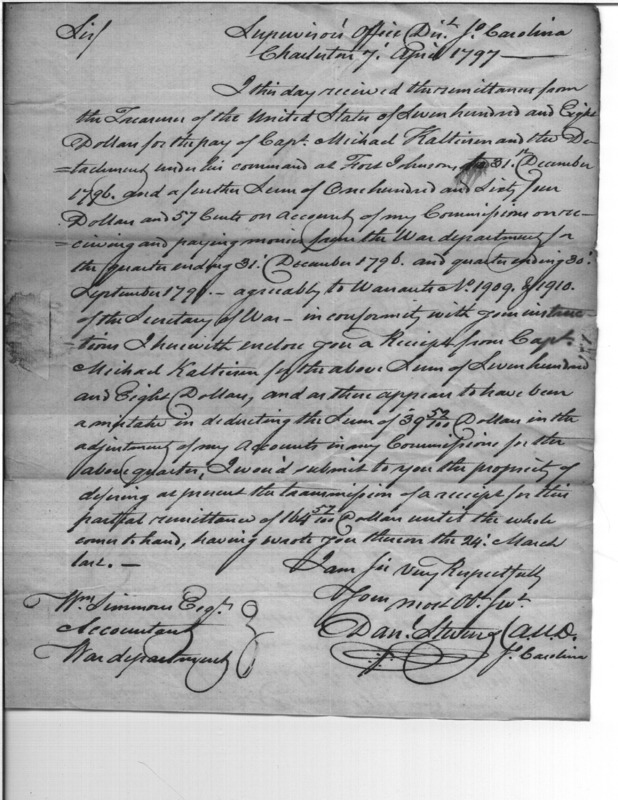 Sir/ Supervisor's Office Dist. So. Carolina
Charleston 7. April 1797
I this day received the remittances from
the Treasurer of the United States of Seven hundred and Eight
Dollars for the pay of Capt. Michael Kalteisen and the De-
=tachment under his command at Fort Johnson, to 31st December
1796. and a further Sum of One hundred and Sixty four
Dollars and 57 Cents on account of my Commissions on re-
=ceiving and paying monies from the War department for
the quarter ending 31. December 1796. and quarter ending 30.
September 179 - agreeably to Warrants No. 1909. & 1910.
of the Secretary of War - in conformity with your instruc-
=tions I herewith enclose you a Receipt from Capt.
Michael Kalteisen for the above Sum of Seven hundred
and Eight Dollars, and as there appears to have been
a mistake in deducting the Sum of 39 52/100 Dollars in the
adjustment of my Accounts in my Commissions for the
above quarter, I wou'd submit to you the propriety of
defering at present the transmission of a receipt for this
partial remittance of 164 57/100 Dollars until the whole
comes to hand, having wrote you thereon the 24. March
last. -
I am Sir Very Respectfully
Your most Obt. Svt.
Wm. Simmons Esqr.
Accountant
War department
Danl. Stevens
So. Carolina